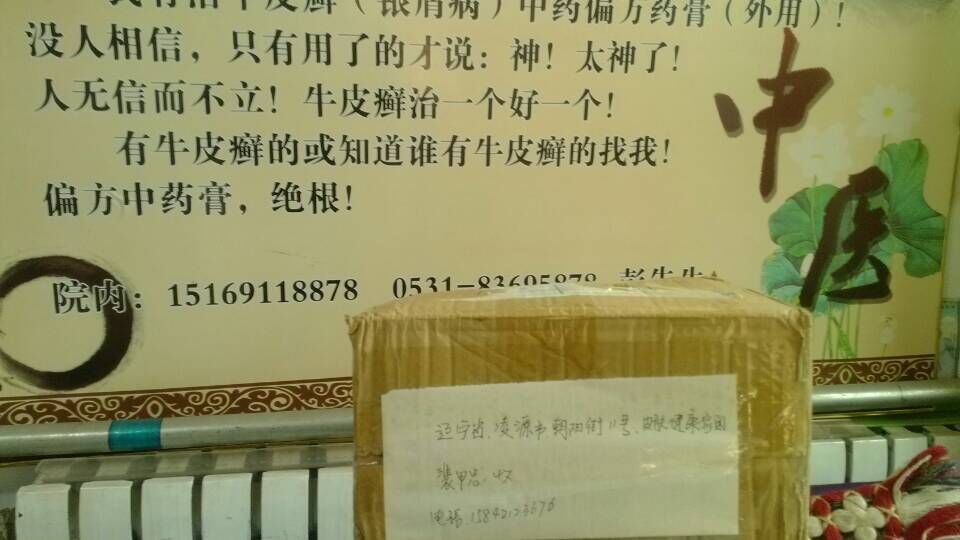 我有治牛皮癣（银屑病）中药偏方药膏（外用）！
没人相信，只有用了的才说：神！太神了！
人无信而不立！牛皮癣治一个好一个！
有牛皮癣的或知道谁有牛皮癣的找我！
偏方中药膏，绝根！
院内：15169118878 0531-83695878 彭先生
中医
辽宁省凌源市朝阳街11号
电话